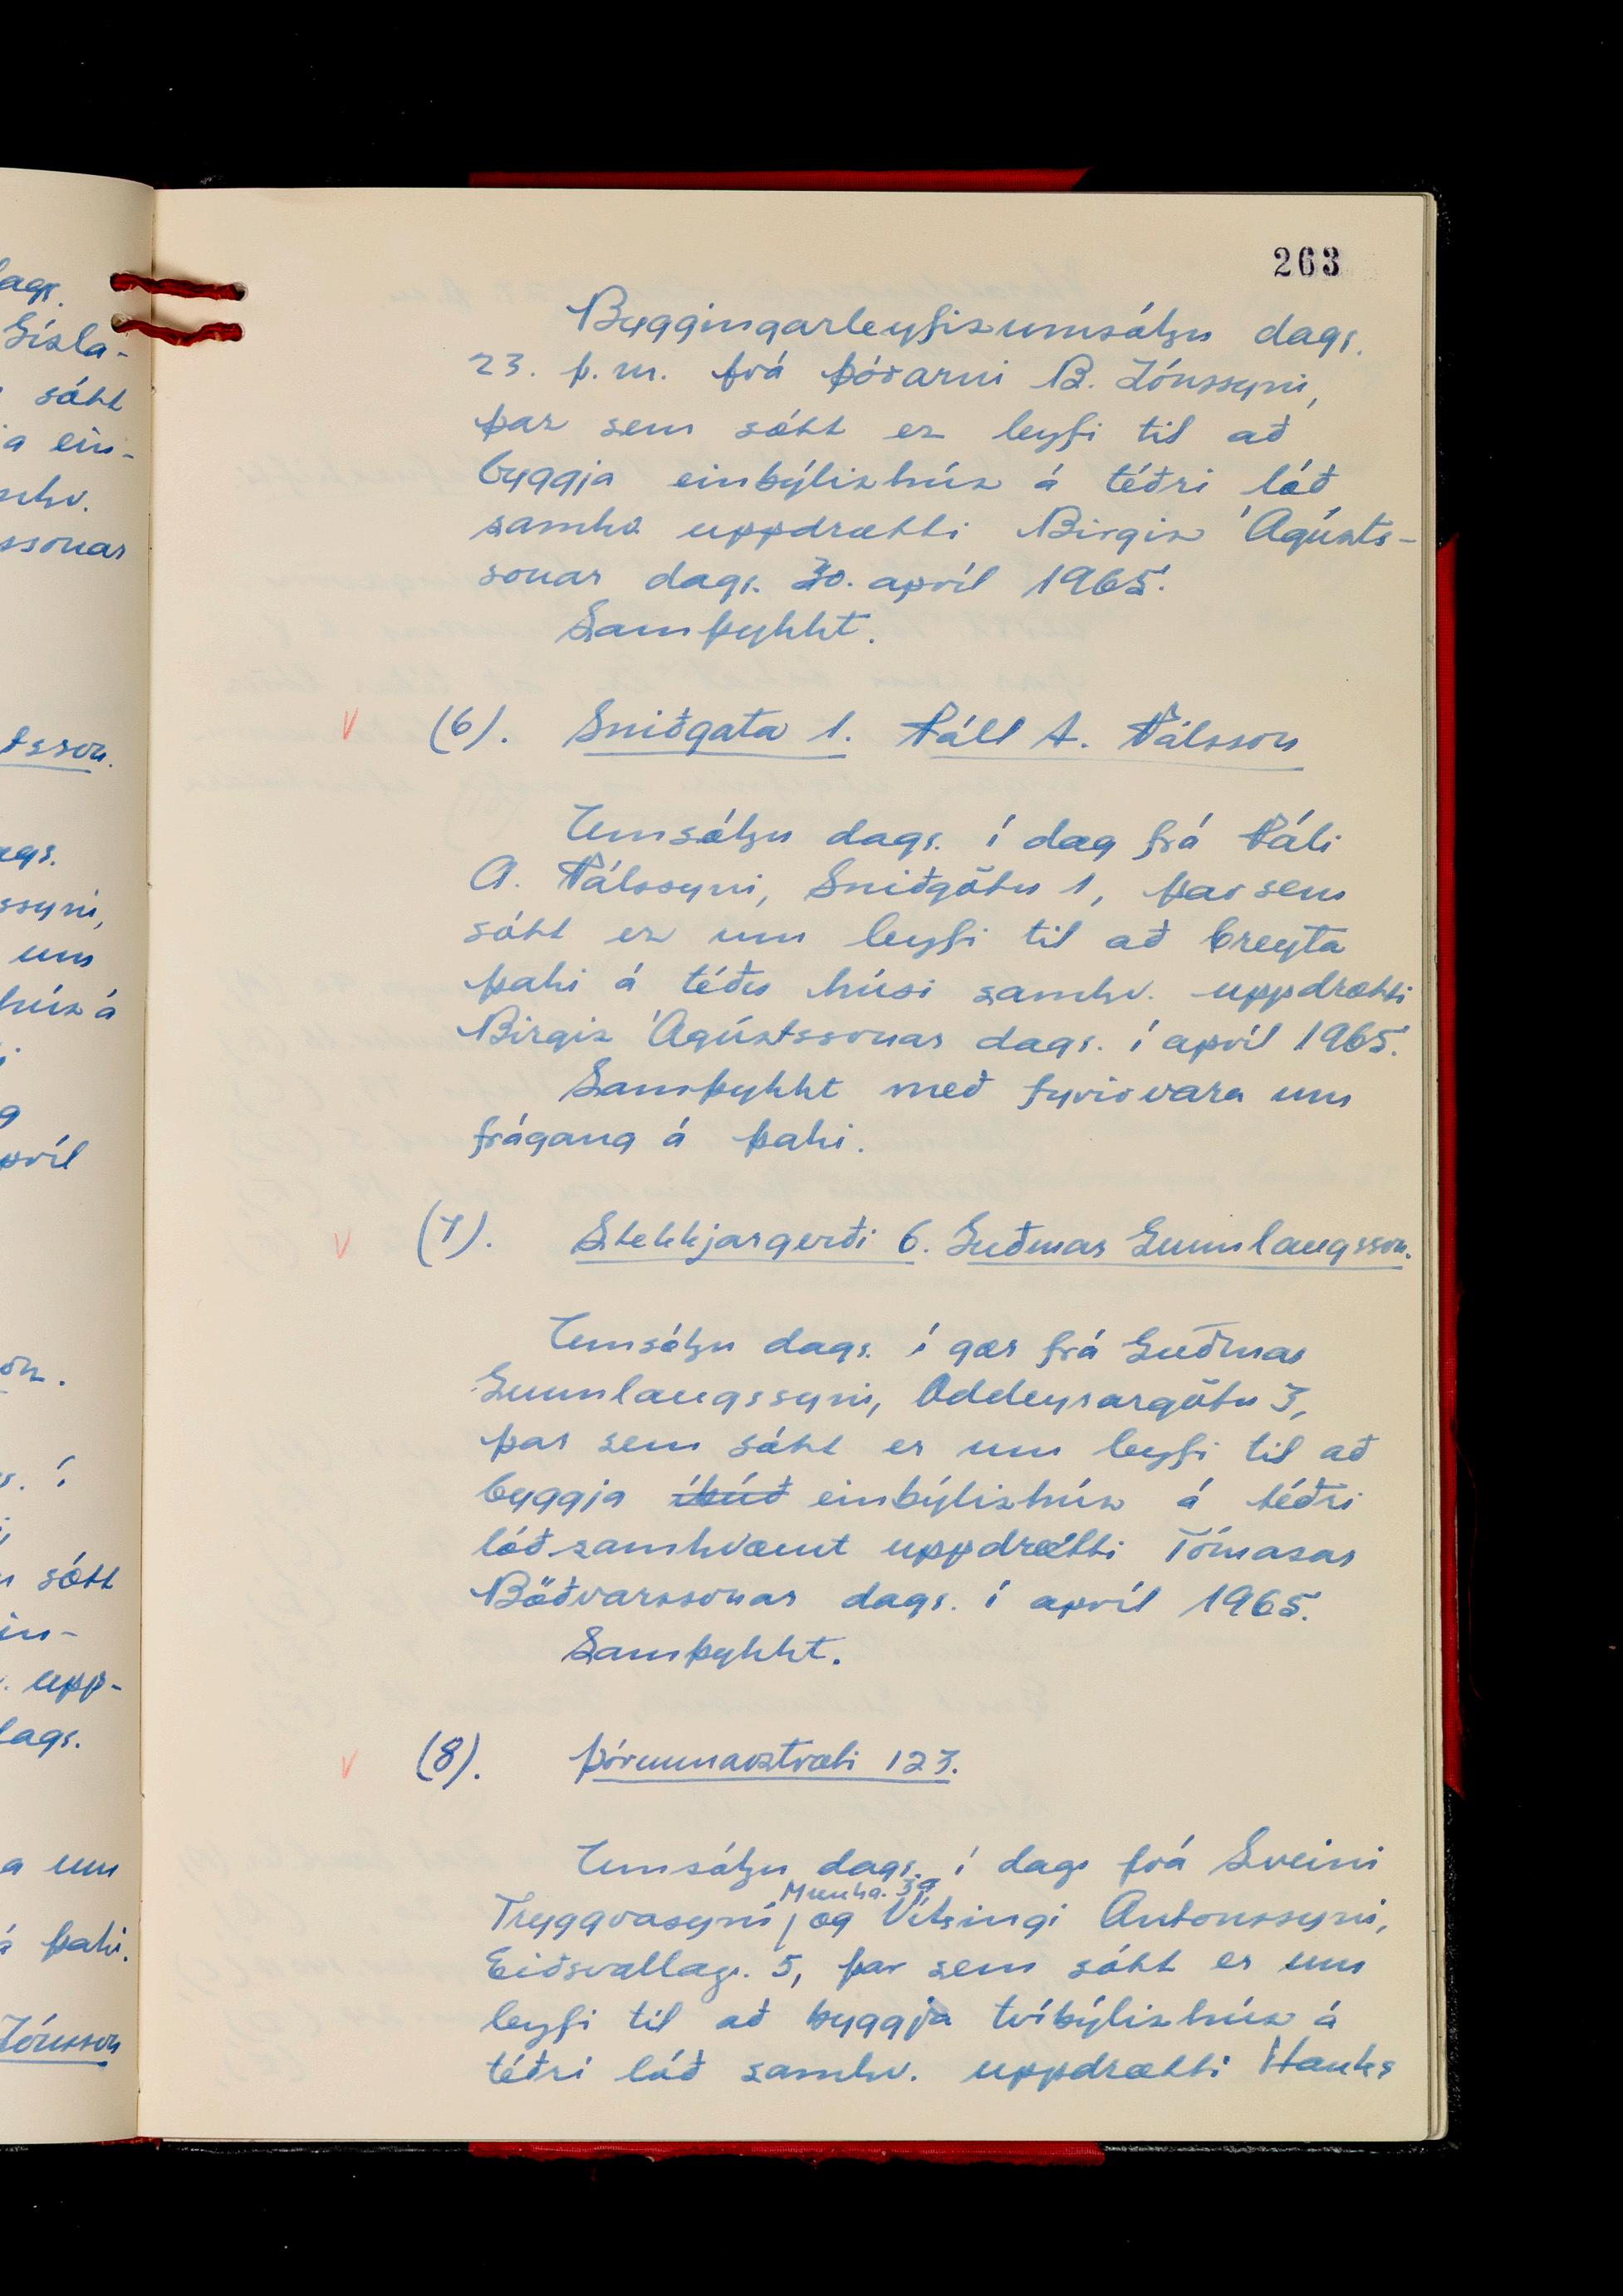 263
Byggingarleyfisumsókn dags.
23. þ.m. frá Þórarni B. Jónssyni,
þar sem sótt er leyfi til að
byggja einbýlishús á téðri lóð
samhv. uppdrætti Birgis Ágústs-
sonar dags. 30. apríl 1965.
Samþykkt.
V (6). Sniðgata 1. Páll A. Pálsson
Umsókn dags. í dag frá Páli
A. Pálssyni, Sniðgötu 1, þar sem
sótt er um leyfi til að breyta
þaki á téðu húsi samhv. uppdrætti
Birgis Ágústssonar dags. í apríl 1965.
Samþykkt með fyrirvara um
frágang á þaki.
V (7). Stekkjargerði 6. Guðmar Gunnlaugsson.
Umsókn dags. í gær frá Guðmar
Gunnlaugssyni, Oddeyrargötu 3,
þar sem sótt er um leyfi til að
byggja íbúð einbýlishús á téðri
lóð samhvæmt uppdrætti Tómasar
Böðvarssonar dags. í apríl 1965.
Samþykkt.
V (8). Þórunnarstræti 123.
Umsókn dags. í dag frá Sveini
Munka. 39
Tryggvasyni, og Víkingi Antonssyni,
Eiðsvallag. 5, þar sem sótt er um
leyfi til að byggja tvíbýlishús á
téðri lóð samhv. uppdrætti Hauks